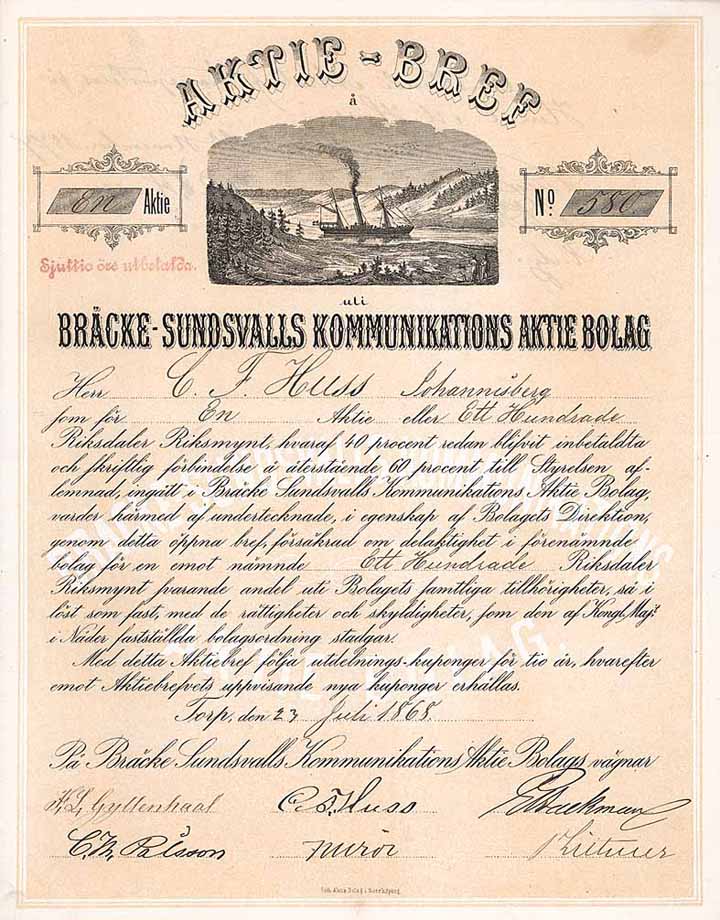 AKTIE-BREF
å
En Aktie
No: 580.
Sjuttio öre utbetalda.
uti
BRÄCKE-SUNDSVALLS KOMMUNIKATIONS AKTIE BOLAG
Herr C. F. Huss Johannisberg
som för En Aktie eller Ett Hundrade
Riksdaler Riksmynt, hvaraf 40 procent redan blifvit inbetaldta
och skriftlig förbindelse å återstående 60 procent till Styrelsen af-
lemnad, ingått i Bräcke Sundsvalls Kommunikations Aktie Bolag,
varder härmed af undertecknade, i egenskap af Bolagets Direktion,
genom detta öppna bref, försäkrad om delaktighet i förenämnde
bolag för en emot nämnde Ett Hundrade Riksdaler
Riksmynt svarande andel uti Bolagets samtliga tillhörigheter, så i
löst som fast, med de rättigheter och skyldigheter, som den af Kongl. Maj:t
i Nåder fastställda bolagsordning stadgar.
Med detta Aktiebref följa utdelnings-kuponger för tio år, hvarefter
emot Aktiebrefvets uppvisande nya kuponger erhållas.
Torp, den 23 Juli 1868.
På Bräcke Sundsvalls Kommunikations Aktie Bolags vägnar
Gyllenhaal C. F. Huss
C. M. Pålsson
Lith. Aktie Bolag i Norrköping.